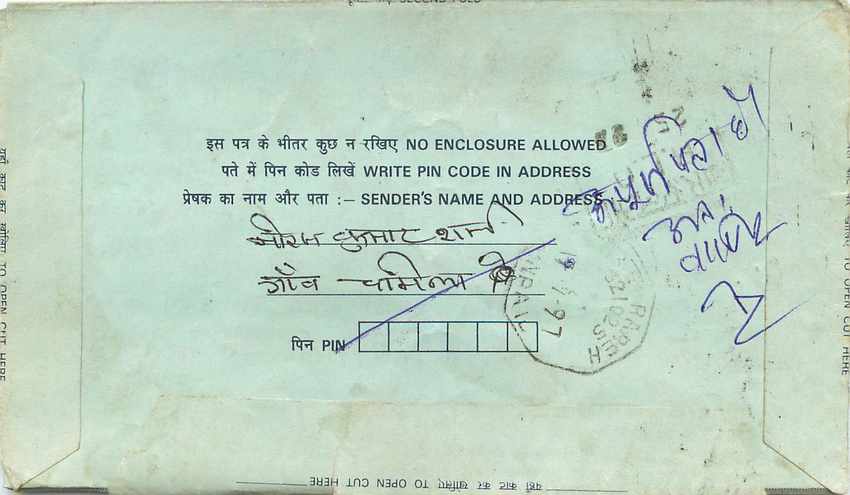 SECOND FOLD
इस पत्र के भीतर कुछ न रखिए NO ENCLOSURE ALLOWED
पते में पिन कोड लिखें WRITE PIN CODE IN ADDRESS
प्रेषक का नाम और पता :— SENDER'S NAME AND ADDRESS
कुमार शर्मा
गाँव
पिन PIN
अपूर्ण पता है
अतः
वापिस
97
RAREH
282105
यहाँ काट कर खोलिए TO OPEN CUT HERE
यहाँ काट कर खोलिए TO OPEN CUT HERE
यहाँ काट कर खोलिए TO OPEN CUT HERE